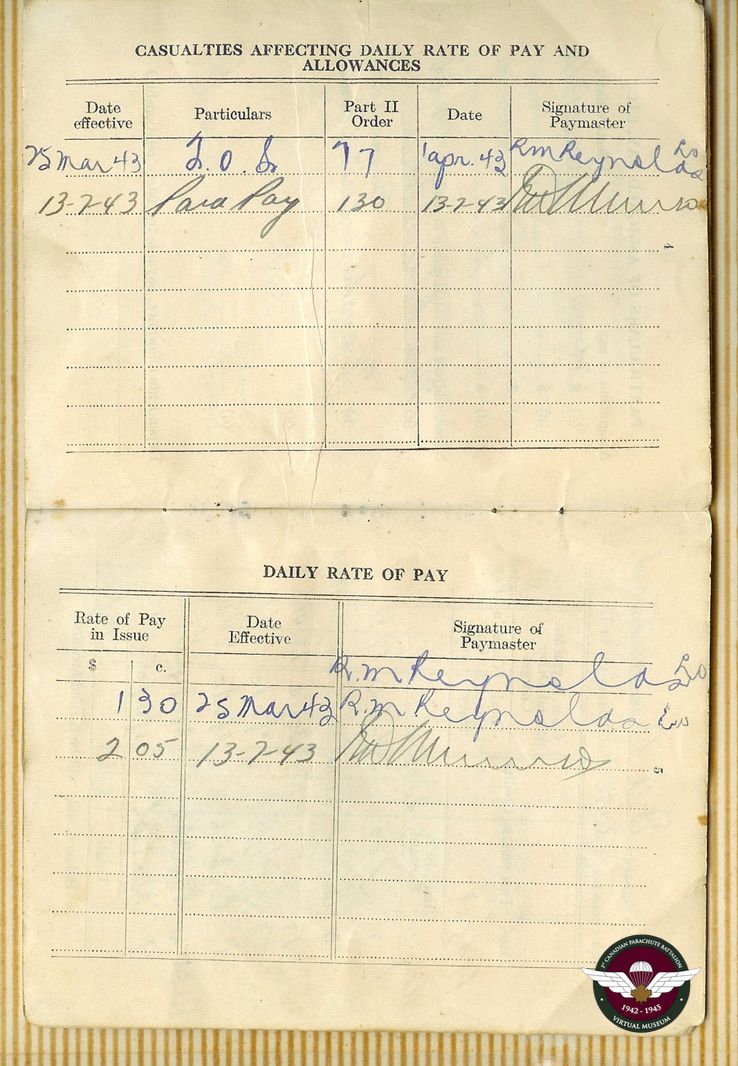 CASUALTIES AFFECTING DAILY RATE OF PAY AND
ALLOWANCES
Date effective Particulars Part II Order Date Signature of Paymaster
25 Mar 43 T.O.S. 77 1 apr. 43 R.M Reynolds Lt
13-7-43 Para Pay 130 13-7-43
4
DAILY RATE OF PAY
Rate of Pay in Issue Date Effective Signature of Paymaster
$ c. R.M Reynolds Lt
1 30 25 Mar 43 R.M Reynolds Lt
2 05 13-7-43
5
1ST CANADIAN PARACHUTE BATTALION
1942 - 1945
VIRTUAL MUSEUM